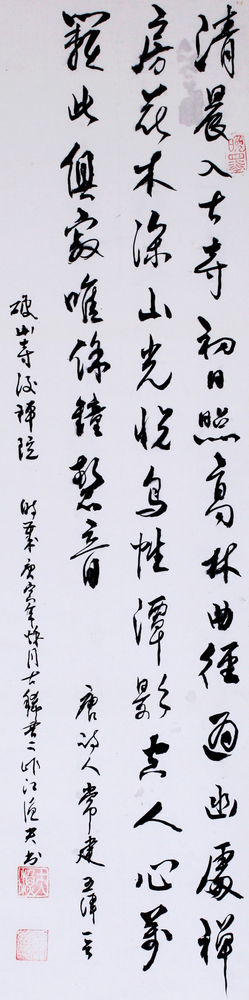 清晨入古寺初日照高林曲徑通幽處禪
房花木深山光悦鳥性潭影空人心萬
籟此俱寂唯餘鐘磬音 唐詩人常建五律一首
破山寺後禪院 時歲庚寅年